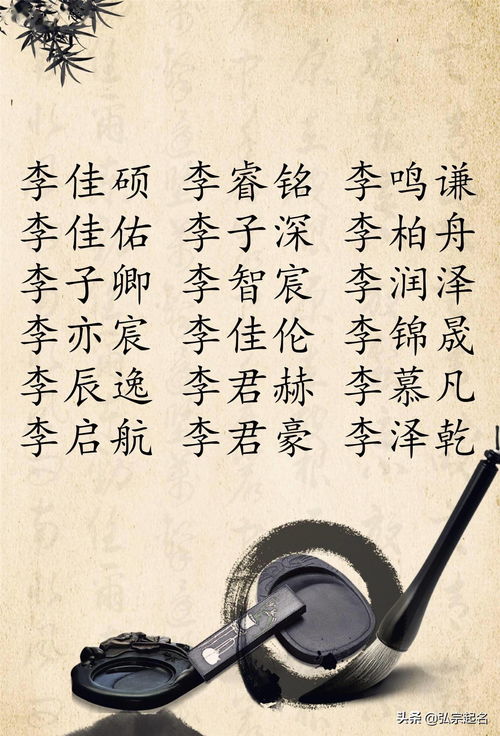 李佳硕 李睿铭 李鸣谦
李佳佑 李子深 李柏舟
李子卿 李智宸 李润泽
李亦宸 李佳伦 李锦晟
李辰逸 李君赫 李慕凡
李启航 李君豪 李泽乾
头条 @弘宗起名